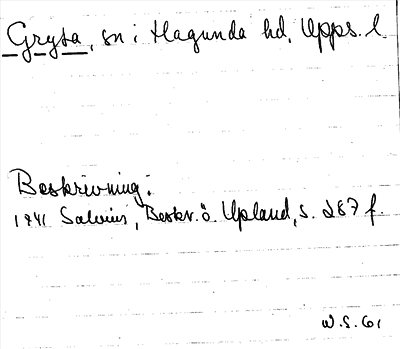 Gryta, sn i Hagunda hd, Upps. l.
Beskrivning:
1741 Salvius, Beskr. ö. Upland, s. 287 f.
W.S. 61